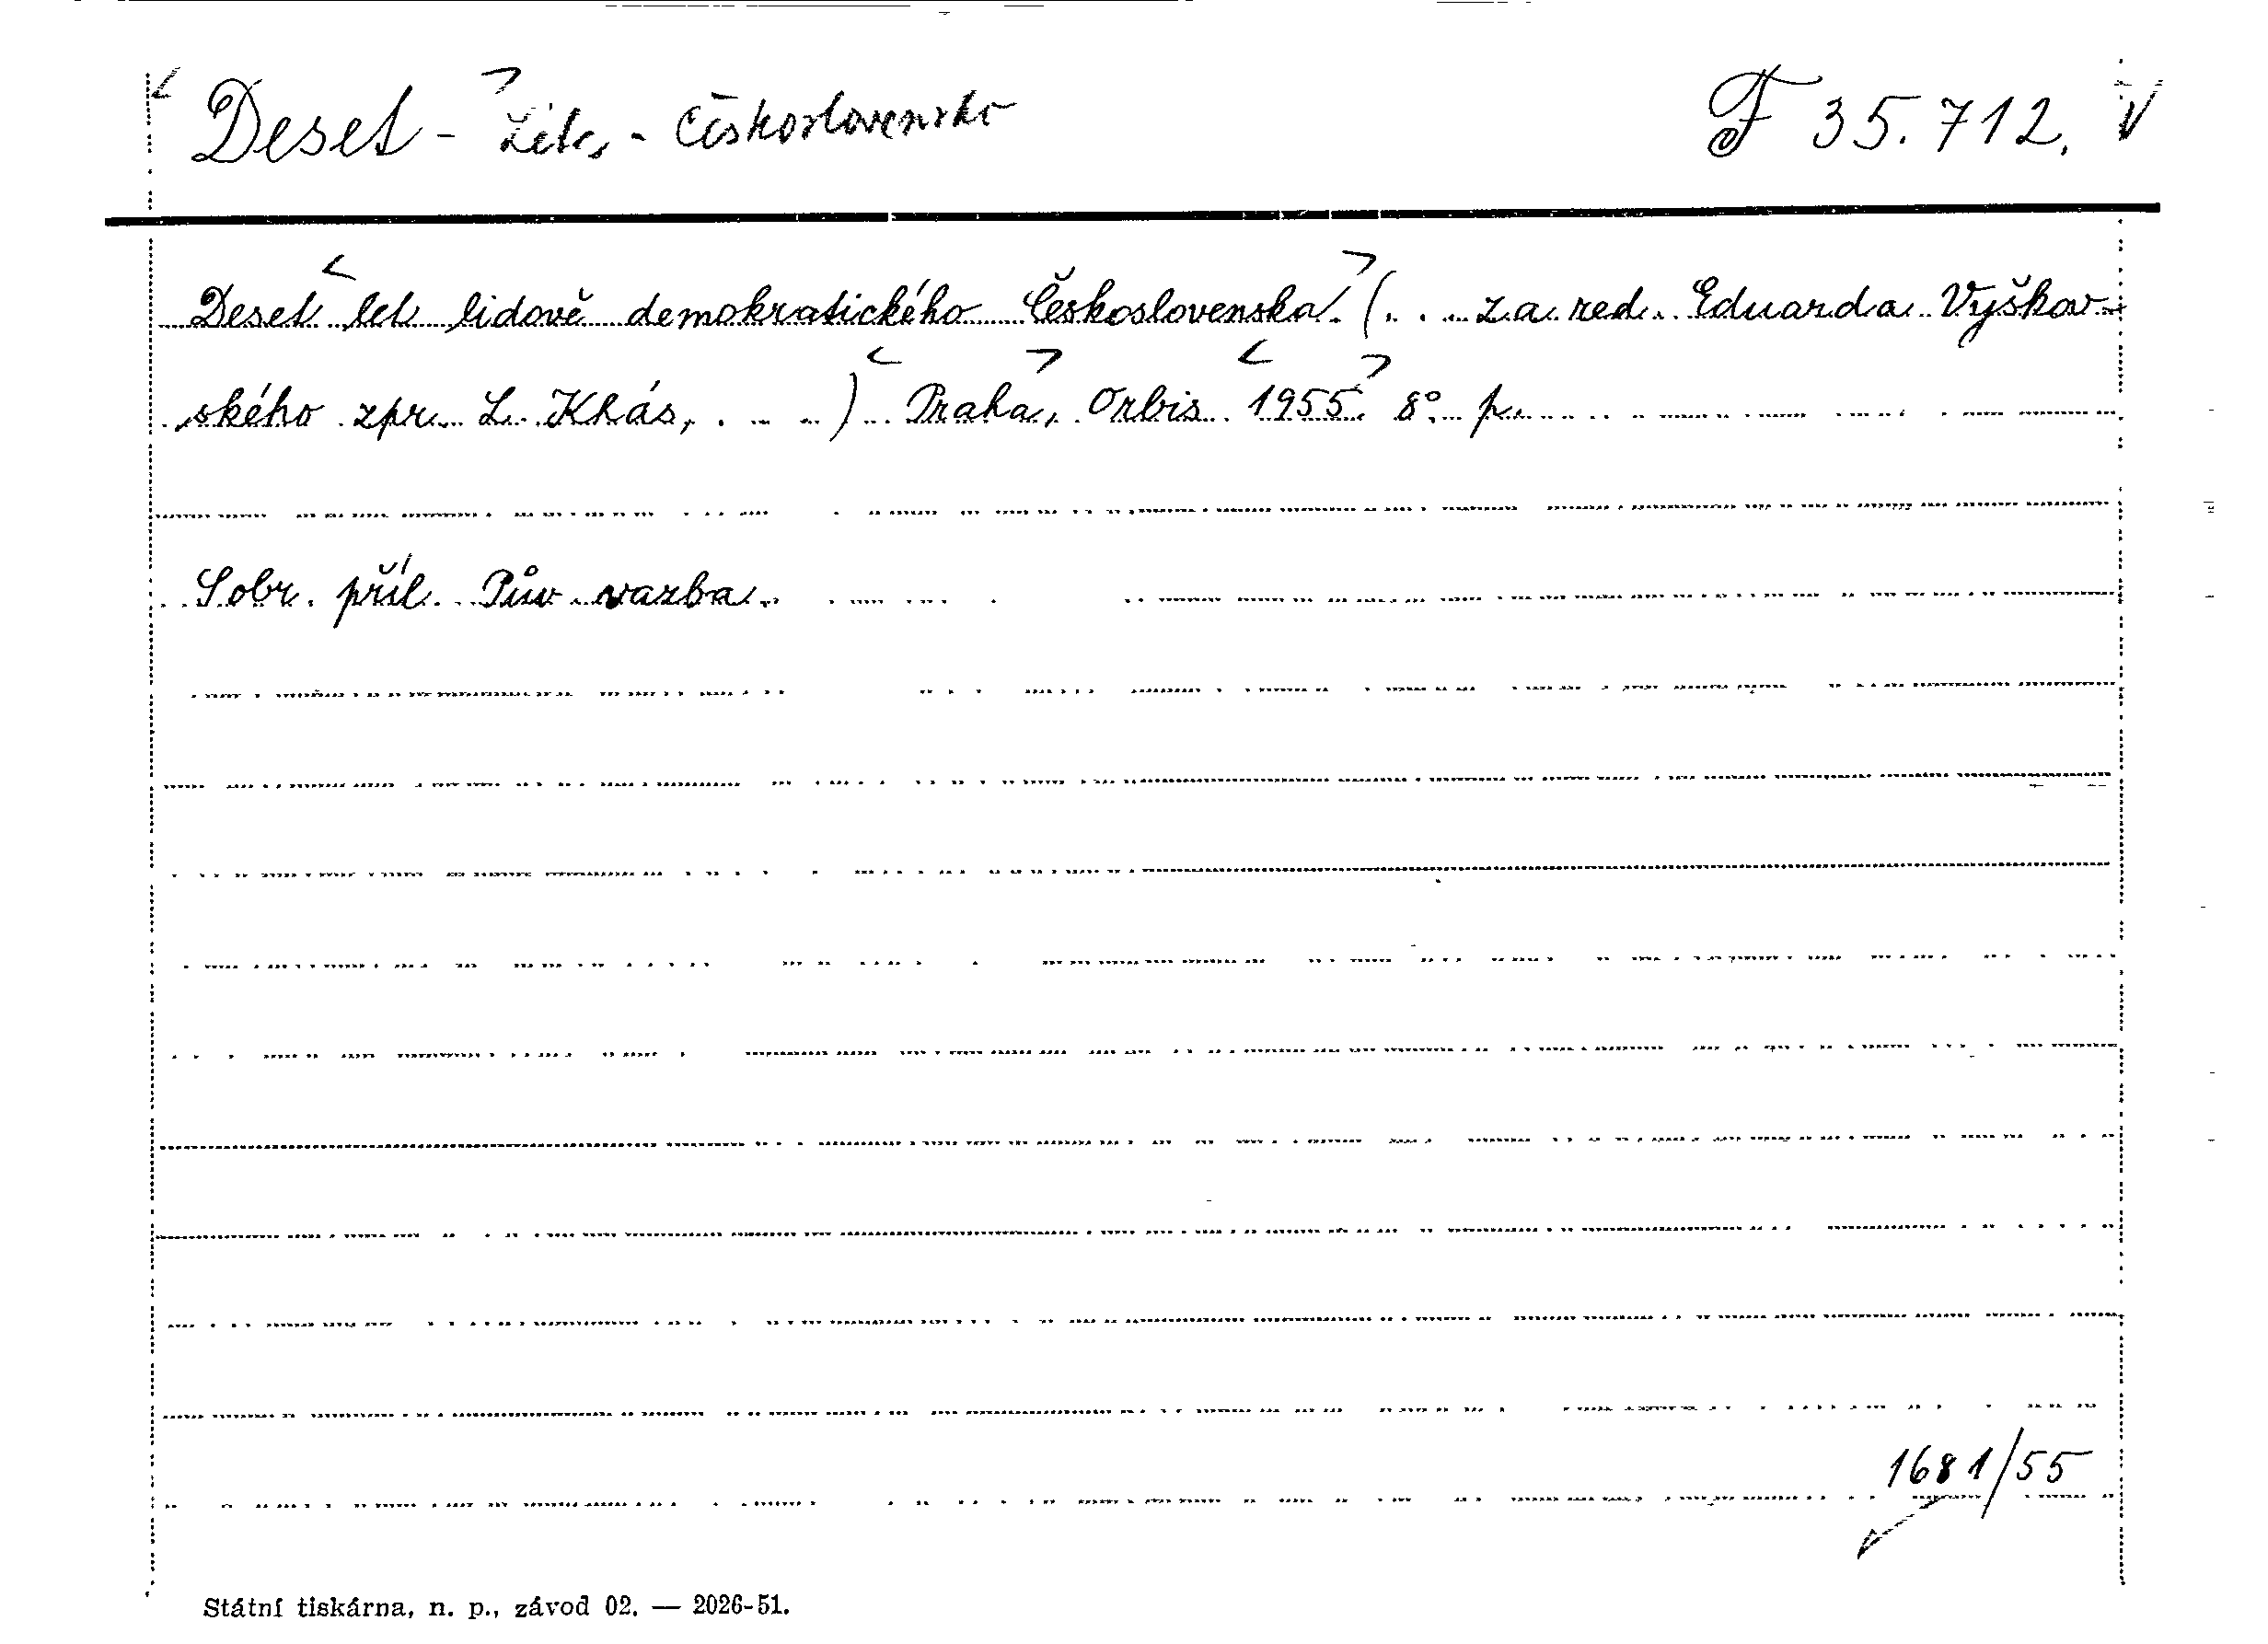 Deset - Léta - Československo F 35.712.
Deset let lidově demokratického Československa. (... za red. Eduarda Vyškov-
ského zpr. L. Khás, ...) Praha, Orbis 1955. 8°. p.
S obr. příl. Pův. vazba.
1681/55
Státní tiskárna, n. p., závod 02. — 2026-51.